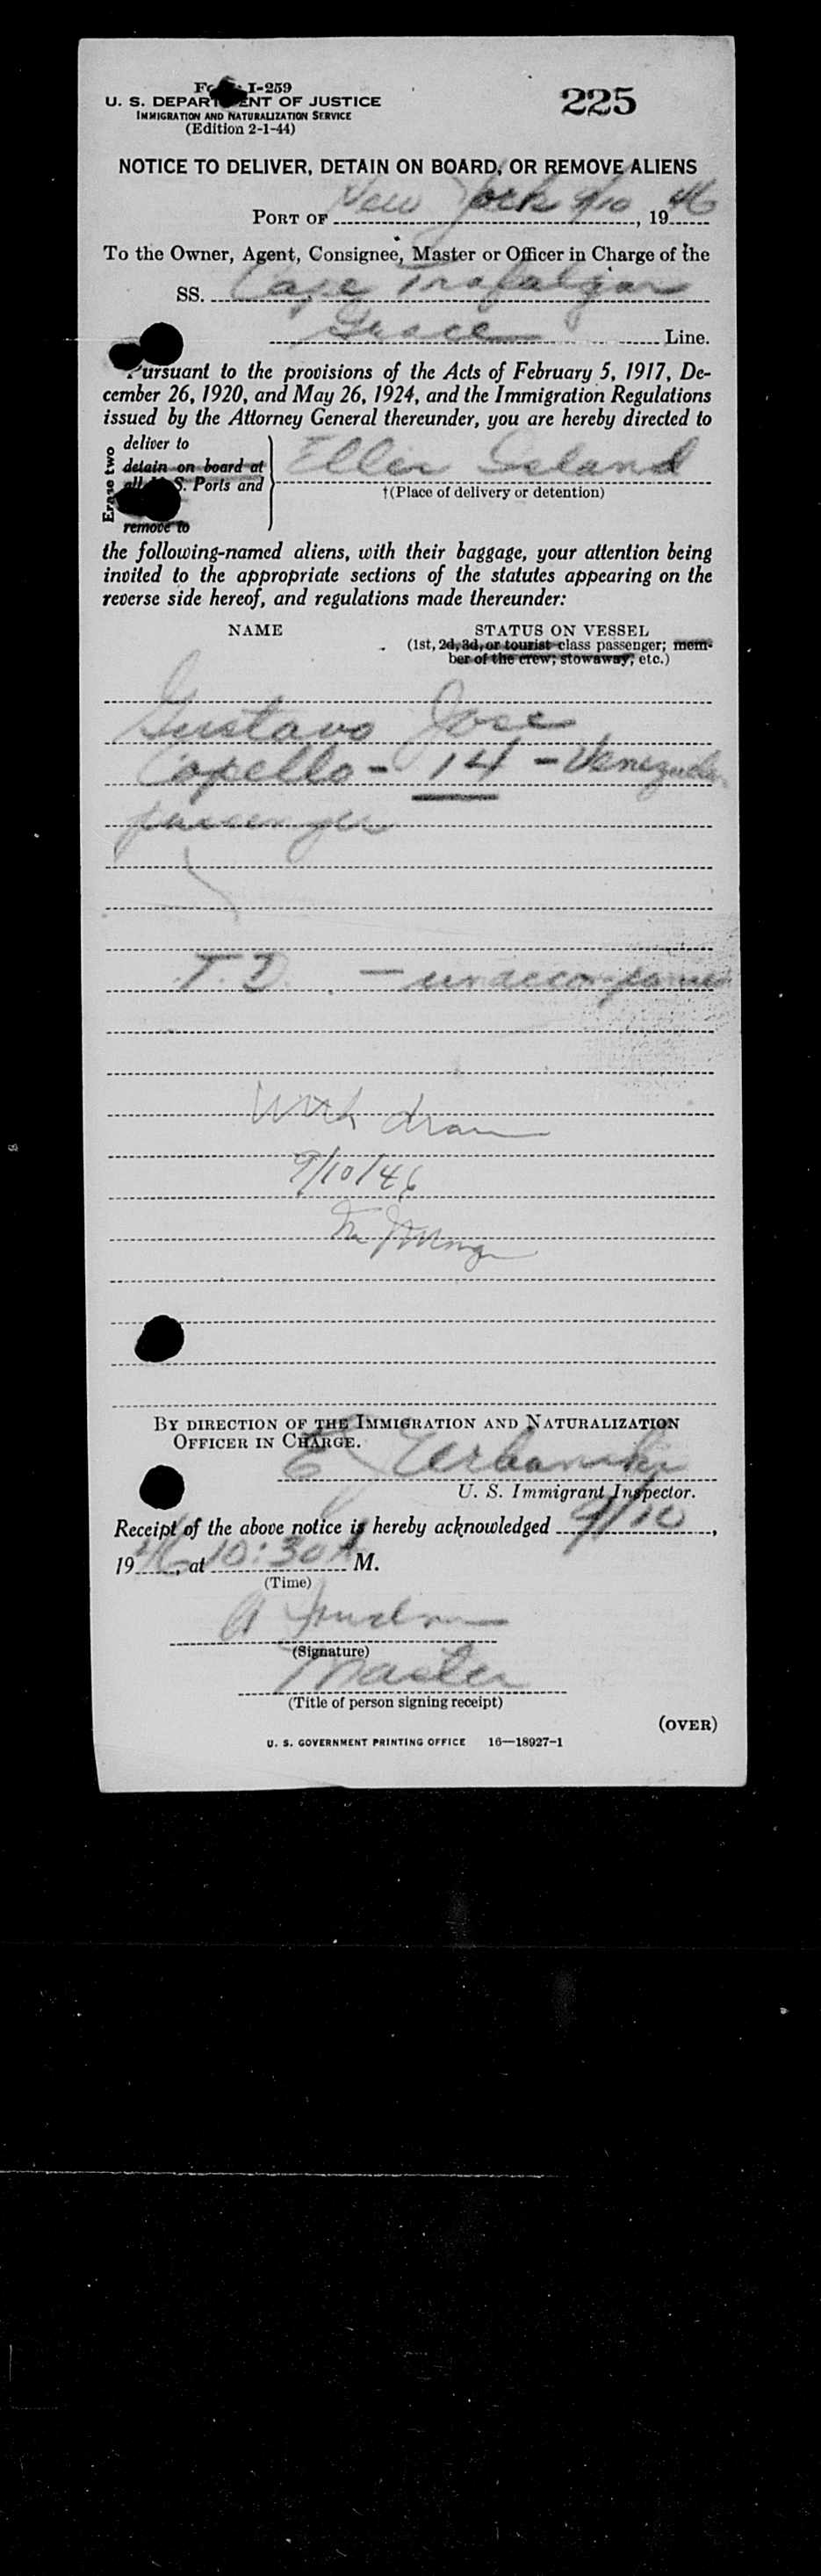 Form I-259
225
U. S. DEPARTMENT OF JUSTICE
IMMIGRATION AND NATURALIZATION SERVICE
(Edition 2-1-44)
NOTICE TO DELIVER, DETAIN ON BOARD, OR REMOVE ALIENS
PORT OF New York 9/10, 1946
To the Owner, Agent, Consignee, Master or Officer in Charge of the
SS. Cape Trafalgar
Grace Line.
Pursuant to the provisions of the Acts of February 5, 1917, De-
cember 26, 1920, and May 26, 1924, and the Immigration Regulations
issued by the Attorney General thereunder, you are hereby directed to
Erase two
deliver to
detain on board at
all U. S. Ports and
remove to
Ellis Island
†(Place of delivery or detention)
the following-named aliens, with their baggage, your attention being
invited to the appropriate sections of the statutes appearing on the
reverse side hereof, and regulations made thereunder:
NAME
STATUS ON VESSEL
(1st, 2d, 3d, or tourist class passenger; mem-
ber of the crew; stowaway; etc.)
Gustavo Jose
Capello - 14 - Venezuelan
passenger
T. D. - unaccompanied
With drawn
9/10/46
BY DIRECTION OF THE IMMIGRATION AND NATURALIZATION
OFFICER IN CHARGE.
E Urbanski
U. S. Immigrant Inspector.
Receipt of the above notice is hereby acknowledged 9/10,
1946, at 10:30 A M.
(Time)
(Signature)
Master
(Title of person signing receipt)
(OVER)
U. S. GOVERNMENT PRINTING OFFICE 16—18927-1